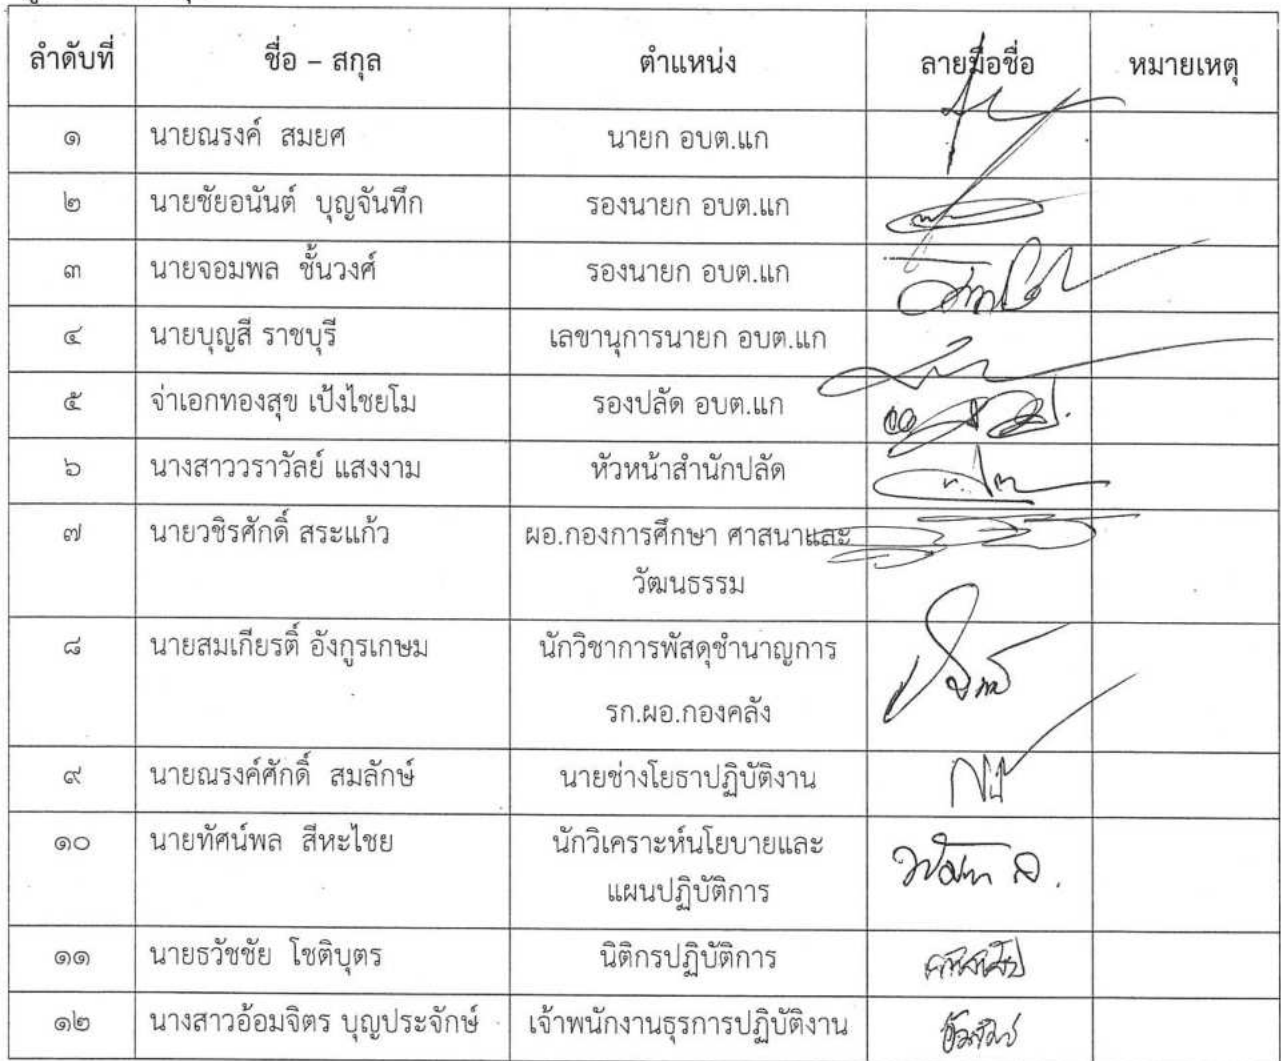 ลำดับที่ ชื่อ – สกุล ตำแหน่ง ลายมือชื่อ หมายเหตุ
๑ นายณรงค์ สมยศ นายก อบต.แก
๒ นายชัยอนันต์ บุญจันทึก รองนายก อบต.แก
๓ นายจอมพล ชั้นวงศ์ รองนายก อบต.แก
๔ นายบุญสี ราชบุรี เลขานุการนายก อบต.แก
๕ จ่าเอกทองสุข เป้งไชยโม รองปลัด อบต.แก
๖ นางสาววราวัลย์ แสงงาม หัวหน้าสำนักปลัด
๗ นายวชิรศักดิ์ สระแก้ว ผอ.กองการศึกษา ศาสนาและ
วัฒนธรรม
๘ นายสมเกียรติ์ อังกูรเกษม นักวิชาการพัสดุชำนาญการ
รก.ผอ.กองคลัง
๙ นายณรงค์ศักดิ์ สมลักษ์ นายช่างโยธาปฏิบัติงาน
๑๐ นายทัศน์พล สีหะไชย นักวิเคราะห์นโยบายและ
แผนปฏิบัติการ
๑๑ นายธวัชชัย โชติบุตร นิติกรปฏิบัติการ
๑๒ นางสาวอ้อมจิตร บุญประจักษ์ เจ้าพนักงานธุรการปฏิบัติงาน